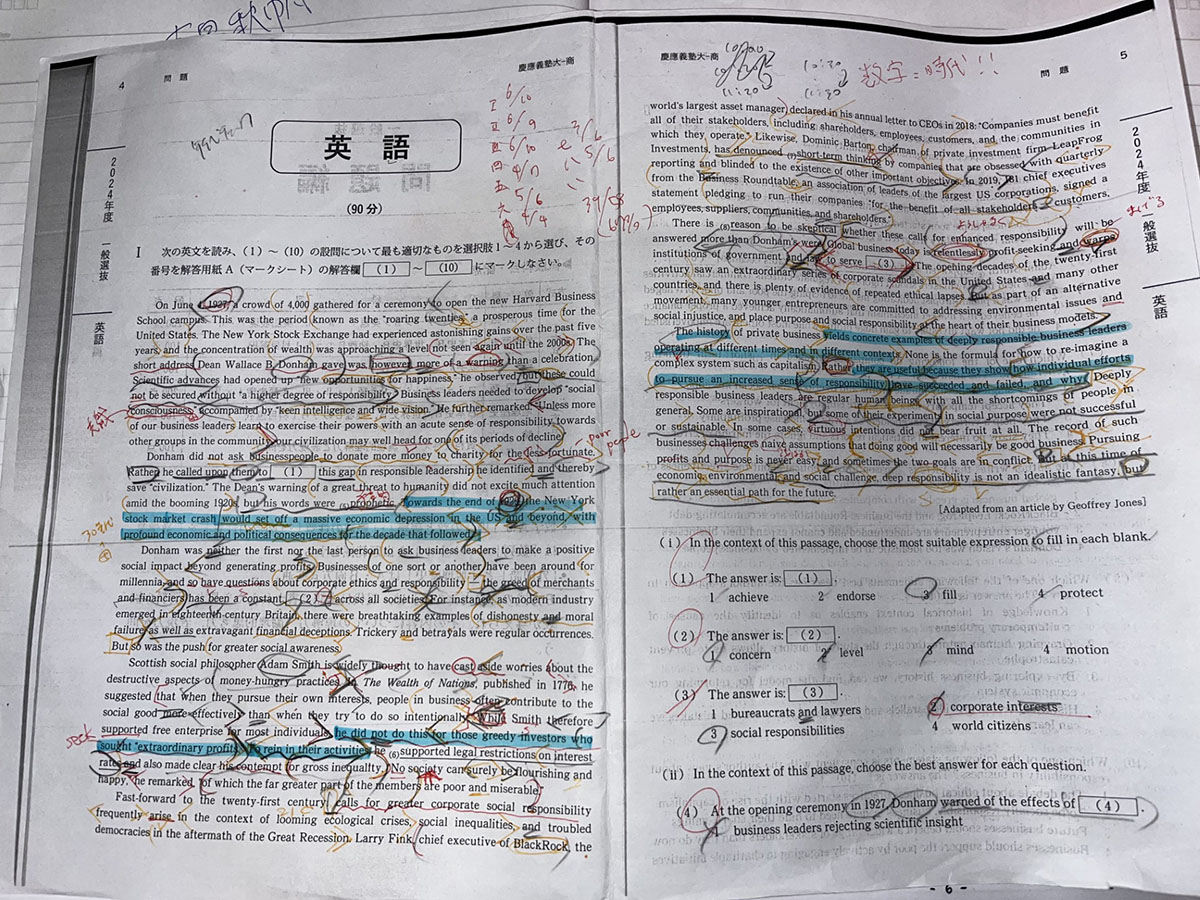 4
問 題
慶應義塾大-商
英 語
(90 分)
2024年度 一般選抜
英語
Ⅰ 次の英文を読み,(1)〜(10)の設問について最も適切なものを選択肢1〜4から選び,その
番号を解答用紙A(マークシート)の解答欄 (1) 〜 (10) にマークしなさい。
On June 4, 1927, a crowd of 4,000 gathered for a ceremony to open the new Harvard Business
School campus. This was the period known as the "roaring twenties," a prosperous time for the
United States. The New York Stock Exchange had experienced astonishing gains over the past five
years, and the concentration of wealth was approaching a level not seen again until the 2000s. The
short address Dean Wallace B. Donham gave was however more of a warning than a celebration.
Scientific advances had opened up "new opportunities for happiness," he observed, but these could
not be secured without "a higher degree of responsibility." Business leaders needed to develop "social
consciousness" accompanied by "keen intelligence and wide vision." He further remarked, "Unless more
of our business leaders learn to exercise their powers with an acute sense of responsibility towards
other groups in the community, our civilization may well head for one of its periods of decline."
Donham did not ask businesspeople to donate more money to charity for the less fortunate.
Rather, he called upon them to (1) this gap in responsible leadership he identified and thereby
save "civilization." The Dean's warning of a great threat to humanity did not excite much attention
amid the booming 1920s, but his words were (5)prophetic. Towards the end of 1929, the New York
stock market crash would set off a massive economic depression in the US and beyond, with
profound economic and political consequences for the decade that followed.
Donham was neither the first nor the last person to ask business leaders to make a positive
social impact beyond generating profits. Businesses of one sort or another have been around for
millennia, and so have questions about corporate ethics and responsibility — the greed of merchants
and financiers has been a constant (2) across all societies. For instance, as modern industry
emerged in eighteenth-century Britain, there were breathtaking examples of dishonesty and moral
failure as well as extravagant financial deceptions. Trickery and betrayals were regular occurrences.
But so was the push for greater social awareness.
Scottish social philosopher Adam Smith is widely thought to have cast aside worries about the
destructive aspects of money-hungry practices. In The Wealth of Nations, published in 1776, he
suggested that when they pursue their own interests, people in business often contribute to the
social good more effectively than when they try to do so intentionally. While Smith therefore
supported free enterprise for most individuals, he did not do this for those greedy investors who
sought "extraordinary profits." To rein in their activities, he (6)supported legal restrictions on interest
rates and also made clear his contempt for gross inequality. "No society can surely be flourishing and
happy," he remarked, "of which the far greater part of the members are poor and miserable."
Fast-forward to the twenty-first century: calls for greater corporate social responsibility
frequently arise in the context of looming ecological crises, social inequalities, and troubled
democracies in the aftermath of the Great Recession. Larry Fink, chief executive of BlackRock, the
poor people
seek
慶應義塾大-商
問 題
5
数字=時代!!
2024年度 一般選抜
英語
world's largest asset manager, declared in his annual letter to CEOs in 2018: "Companies must benefit
all of their stakeholders, including shareholders, employees, customers, and the communities in
which they operate." Likewise, Dominic Barton, chairman of private investment firm LeapFrog
Investments, has denounced (7)short-term thinking by companies that are obsessed with quarterly
reporting and blinded to the existence of other important objectives. In 2019, 181 chief executives
from the Business Roundtable, an association of leaders of the largest US corporations, signed a
statement pledging to run their companies "for the benefit of all stakeholders — customers,
employees, suppliers, communities, and shareholders."
There is (8)reason to be skeptical whether these calls for enhanced responsibility will be
answered more than Donham's were. Global business today relentlessly profit-seeking and warps
institutions of government and law to serve (3). The opening decades of the twenty-first
century saw an extraordinary series of corporate scandals in the United States and many other
countries, and there is plenty of evidence of repeated ethical lapses. But as part of an alternative
movement, many younger entrepreneurs are committed to addressing environmental issues and
social injustice, and place purpose and social responsibility at the heart of their business models.
The history of private business yields concrete examples of deeply responsible business leaders
operating at different times and in different contexts. None is the formula for how to re-imagine a
complex system such as capitalism. Rather, they are useful because they show how individual efforts
to pursue an increased sense of responsibility have succeeded and failed, and why. Deeply
responsible business leaders are regular human beings with all the shortcomings of people in
general. Some are inspirational, but some of their experiments in social purpose were not successful
or sustainable. In some cases, virtuous intentions did not bear fruit at all. The record of such
businesses challenges naive assumptions that doing good will necessarily be good business. Pursuing
profits and purpose is never easy, and sometimes the two goals are in conflict. But at this time of
economic, environmental, and social challenge, deep responsibility is not an idealistic fantasy, but
rather an essential path for the future.
[Adapted from an article by Geoffrey Jones]
(i) In the context of this passage, choose the most suitable expression to fill in each blank.
(1) The answer is: (1) .
1 achieve 2 endorse 3 fill 4 protect
(2) The answer is: (2) .
1 concern 2 level 3 mind 4 motion
(3) The answer is: (3) .
1 bureaucrats and lawyers 2 corporate interests
3 social responsibilities 4 world citizens
(ii) In the context of this passage, choose the best answer for each question.
(4) At the opening ceremony in 1927, Donham warned of the effects of (4) .
1 business leaders rejecting scientific insight
- 6 -